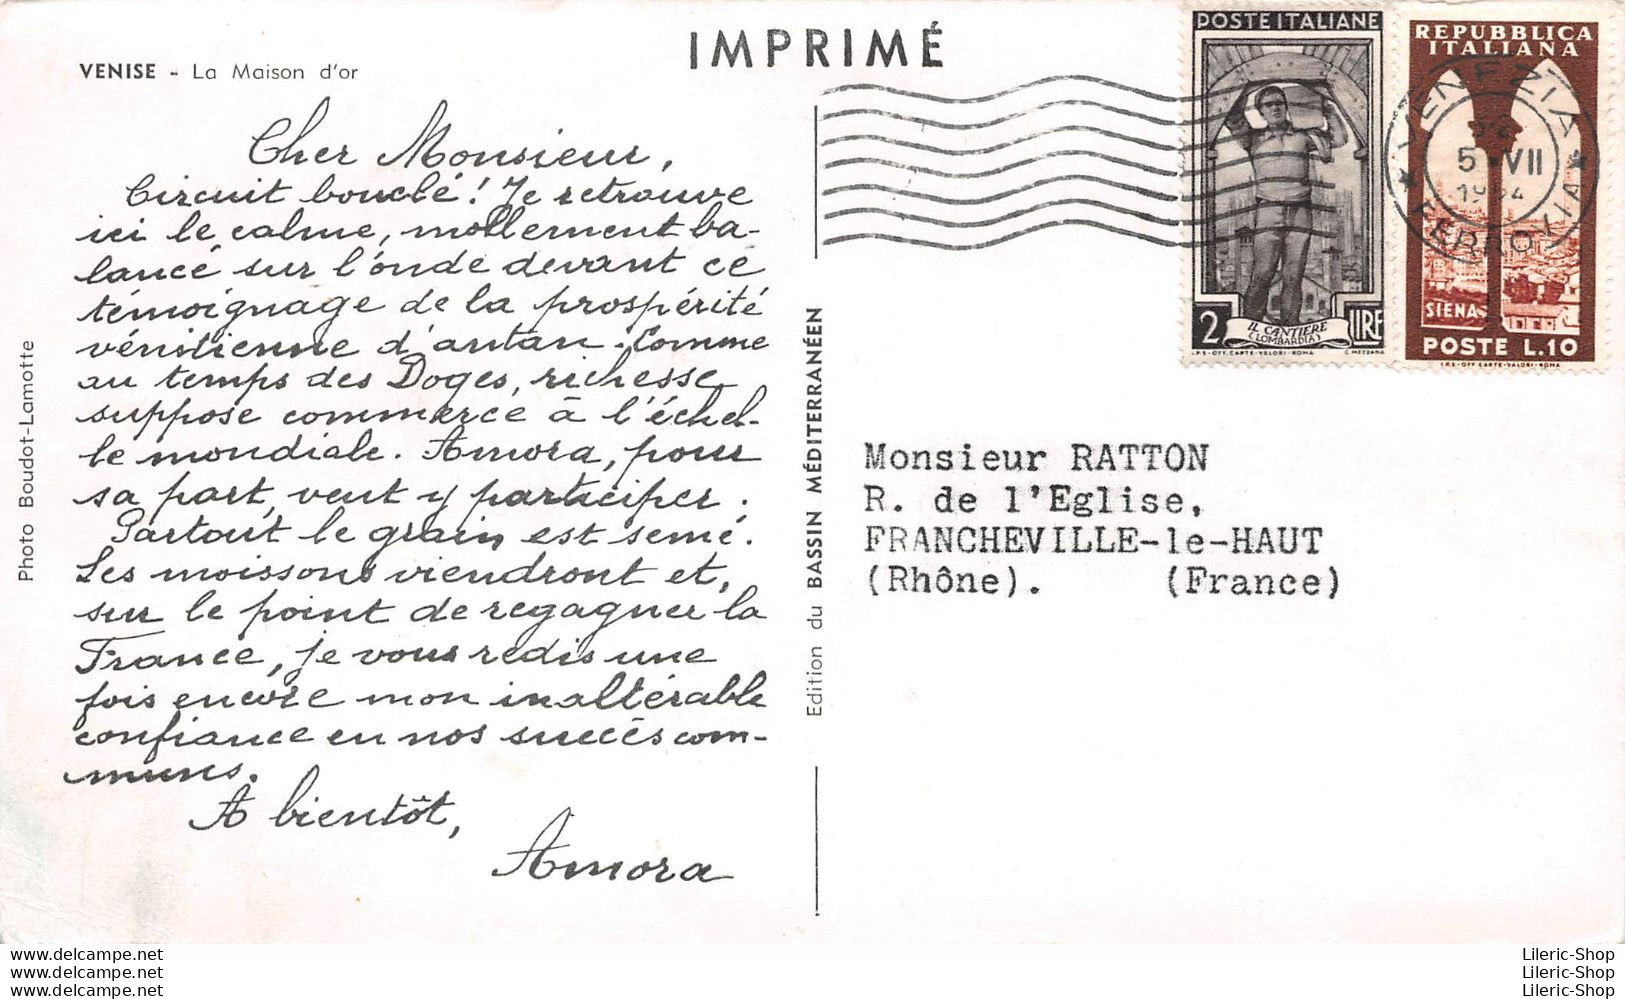 IMPRIMÉ
VENISE - La Maison d'or
Cher Monsieur,
Circuit bouclé! Je retrouve
ici le calme, mollement ba-
lancé sur l'onde devant ce
témoignage de la prospérité
vénitienne d'antan. Comme
au temps des Doges, richesse
suppose commerce à l'échel-
le mondiale. Amora, pour
sa part, veut y participer.
Partout le grain est semé.
Les moissons viendront et,
sur le point de regagner la
France, je vous redis une
fois encore mon inaltérable
confiance en nos succès com-
muns.
A bientôt,
Amora
Photo Boudot-Lamotte
Edition du BASSIN MÉDITERRANÉEN
POSTE ITALIANE
2 LIRE
IL CANTIERE
(LOMBARDIA)
I.P.S-OFF. CARTE-VALORI-ROMA C. MEZZANA
REPUBBLICA
ITALIANA
SIENA
POSTE L.10
I.P.S-OFF CARTE-VALORI-ROMA
VENEZIA
5 VII
FERROVIA
Monsieur RATTON
R. de l'Eglise,
FRANCHEVILLE-le-HAUT
(Rhône). (France)
Lileric-Shop
Lileric-Shop
Lileric-Shop
Lileric-Shop
Lileric-Shop
Lileric-Shop